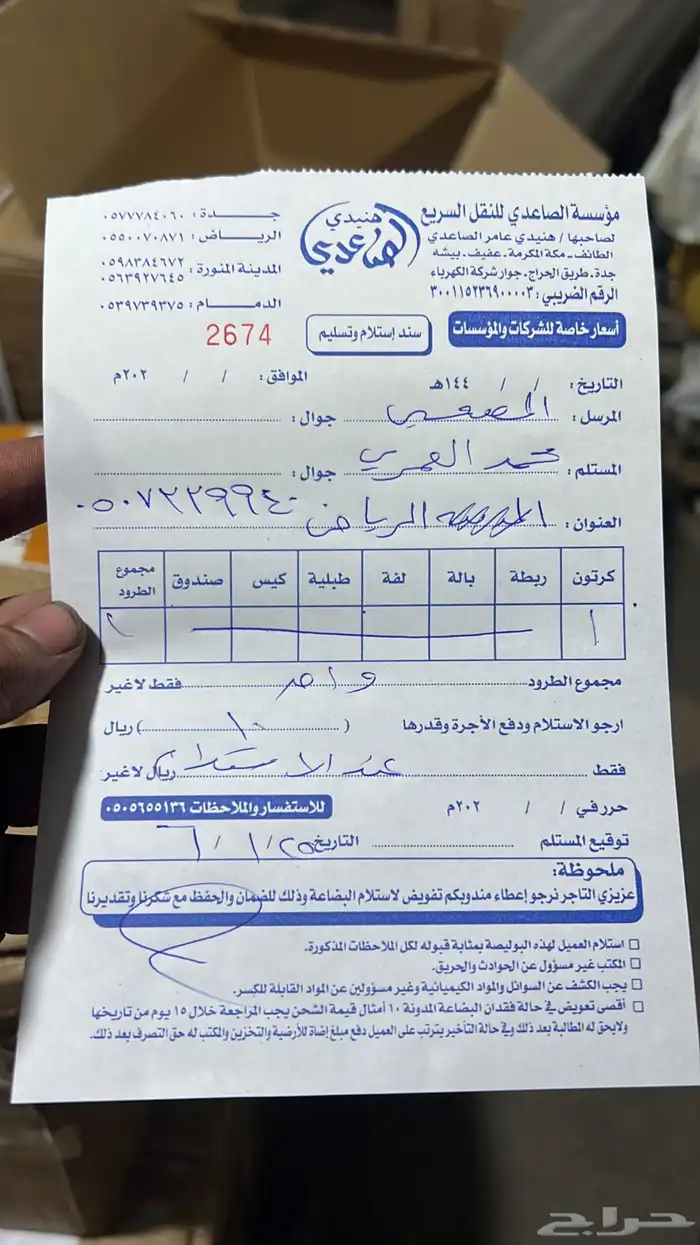 مؤسسة الصاعدي للنقل السريع
لصاحبها / هنيدي عامر الصاعدي
الطائف - مكة المكرمة - عفيف - بيشه
جدة - طريق الحراج - جوار شركة الكهرباء
الرقم الضريبي: ٣٠٠١١٥٢٣٦٩٠٠٠٠٣
هنيدي
الصاعدي
جـــدة: ٠٥٧٧٧٨٤٠٦٠
الرياض: ٠٥٥٠٠٧٠٨٧١
المدينة المنورة: ٠٥٩٨٣٨٤٦٧٢
٠٥٦٣٩٢٧٦٤٥
الدمام: ٠٥٣٩٧٣٩٣٧٥
أسعار خاصة للشركات والمؤسسات
سند إستلام وتسليم
2674
التاريخ: / / ١٤٤هـ الموافق: / / ٢٠٢م
المرسل: جوال:
المستلم: محمد العمري جوال:
العنوان: الرياض ٠٥٠٧٢٢٩٩٤٠
كرتون ربطة بالة لفة طبلية كيس صندوق مجموع الطرود
١ ١
مجموع الطرود واحد فقط لاغير
ارجو الاستلام ودفع الأجرة وقدرها ( ١٠ ) ريال
فقط عند الاستلام ريال لاغير
حرر في / / ٢٠٢م للاستفسار والملاحظات ٠٥٠٥٦٥٥١٣٦
توقيع المستلم التاريخ ٢٥ / ١ / ٦
ملحوظة:
عزيزي التاجر نرجو إعطاء مندوبكم تفويض لاستلام البضاعة وذلك للضمان والحفظ مع شكرنا وتقديرنا
استلام العميل لهذه البوليصة بمثابة قبوله لكل الملاحظات المذكورة.
المكتب غير مسؤول عن الحوادث والحريق.
يجب الكشف عن السوائل والمواد الكيميائية وغير مسؤولين عن المواد القابلة للكسر.
أقصى تعويض في حالة فقدان البضاعة المدونة ١٠ أمثال قيمة الشحن يجب المراجعة خلال ١٥ يوم من تاريخها
ولايحق له المطالبة بعد ذلك وفي حالة التأخير يترتب على العميل دفع مبلغ إضافة للأرضية والتخزين والمكتب له حق التصرف بعد ذلك.
حراج